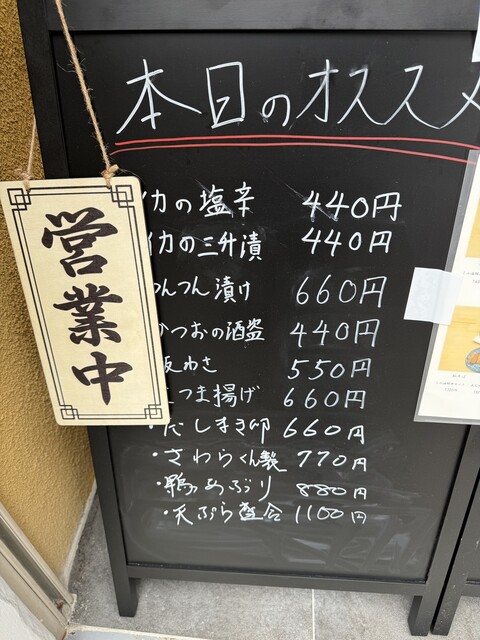 本日のオススメ
営業中
イカの塩辛 440円
イカの三升漬 440円
つんつん漬け 660円
かつおの酒盗 440円
板わさ 550円
つま揚げ 660円
・だしまき卵 660円
・さわらくん製 770円
・鴨あぶり 880円
・天ぷら盛合 1100円